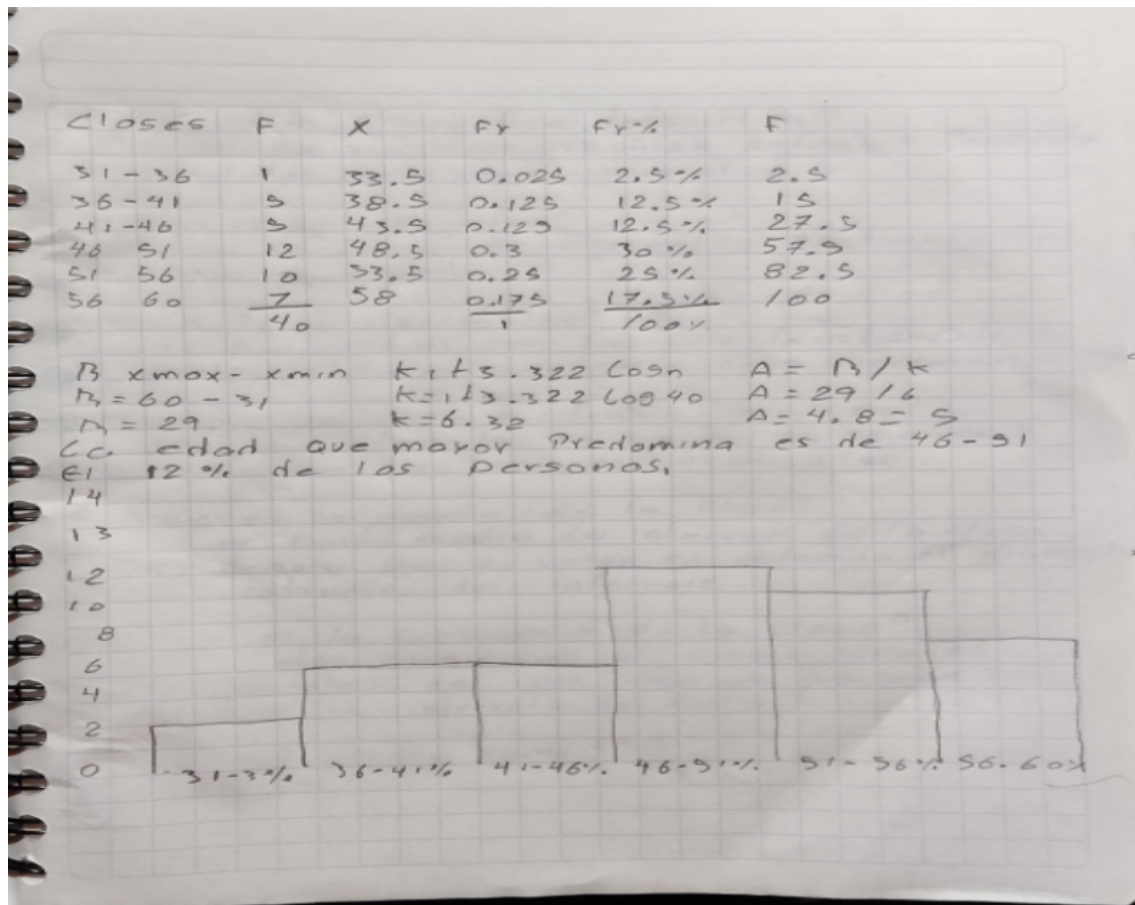 Clases F X Fr Fr% F
31-36 1 33.5 0.025 2.5% 2.5
36-41 5 38.5 0.125 12.5% 15
41-46 5 43.5 0.125 12.5% 27.5
46 51 12 48.5 0.3 30% 57.5
51 56 10 53.5 0.25 25% 82.5
56 60 7 58 0.175 17.5% 100
40 1 100%
R xmax-xmin K1+3.322 Logn A = R/K
R = 60-31 K=1+3.322 Log 40 A = 29/6
R = 29 K=6.32 A= 4.8 = 5
La edad que mayor Predomina es de 46-51
El 12% de las personas.
14
13
12
10
8
6
4
2
0 31-3% 36-41% 41-46% 46-51% 51-56% 56-60%